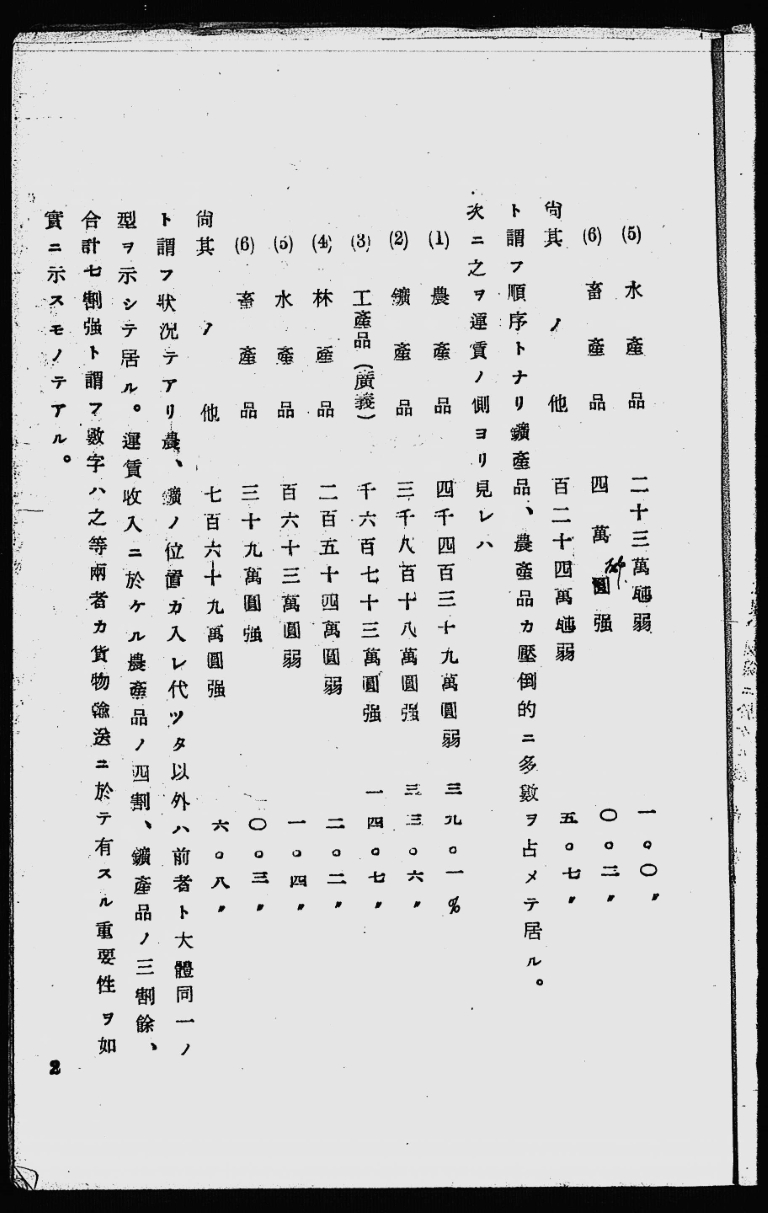 (5) 水產品 二十三萬瓲弱 一。〇〃
(6) 畜產品 四萬圓强 〇。二〃
尙其ノ他 百二十四萬瓲弱 五。七〃
ト謂フ順序トナリ鑛產品、農產品カ壓倒的ニ多數ヲ占メテ居ル。
次ニ之ヲ運賃ノ側ヨリ見レハ
(1) 農產品 四千四百三十九萬圓弱 三九。一%
(2) 鑛產品 三千八百十八萬圓强 三三。六〃
(3) 工產品(廣義) 千六百七十三萬圓强 一四。七〃
(4) 林產品 二百五十四萬圓弱 二。二〃
(5) 水產品 百六十三萬圓弱 一。四〃
(6) 畜產品 三十九萬圓强 〇。三〃
尙其ノ他 七百六十九萬圓强 六。八〃
ト謂フ狀況テアリ農、鑛ノ位置カ入レ代ツタ以外ハ前者ト大體同一ノ
型ヲ示シテ居ル。運賃收入ニ於ケル農產品ノ四割、鑛產品ノ三割餘、
合計七割强ト謂フ數字ハ之等兩者カ貨物輸送ニ於テ有スル重要性ヲ如
實ニ示スモノテアル。
2